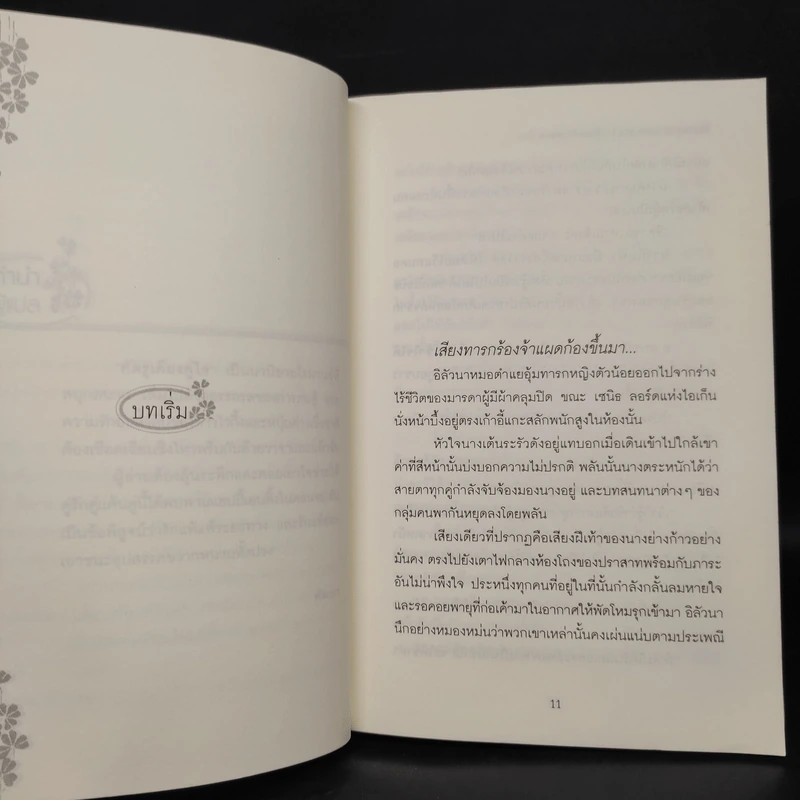 บทเริ่ม
เสียงทารกร้องจ้าแผดก้องขึ้นมา...
อิลัวนาหมอตำแยอุ้มทารกหญิงตัวน้อยออกไปจากร่าง
ไร้ชีวิตของมารดาผู้มีผ้าคลุมปิด ขณะ เซนิธ ลอร์ดแห่งไอเก็น
นั่งหน้าบึ้งอยู่ตรงเก้าอี้แกะสลักพนักสูงในห้องนั้น
หัวใจนางเต้นระรัวดังอยู่แทบอกเมื่อเดินเข้าไปใกล้เขา
ค่าที่สีหน้านั้นบ่งบอกความไม่ปรกติ พลันนั้นนางตระหนักได้ว่า
สายตาทุกคู่กำลังจับจ้องมองนางอยู่ และบทสนทนาต่างๆ ของ
กลุ่มคนพากันหยุดลงโดยพลัน
เสียงเดียวที่ปรากฏคือเสียงฝีเท้าของนางย่างก้าวอย่าง
มั่นคง ตรงไปยังเตาไฟกลางห้องโถงของปราสาทพร้อมกับภาระ
อันไม่น่าพึงใจ ประหนึ่งทุกคนที่อยู่ในที่นั้นกำลังกลั้นลมหายใจ
และรอคอยพายุที่ก่อเค้ามาในอากาศให้พัดโหมรุกเข้ามา อิลัวนา
นึกอย่างหมองหม่นว่าพวกเขาเหล่านั้นคงเผ่นแน่บตามประเพณี
11